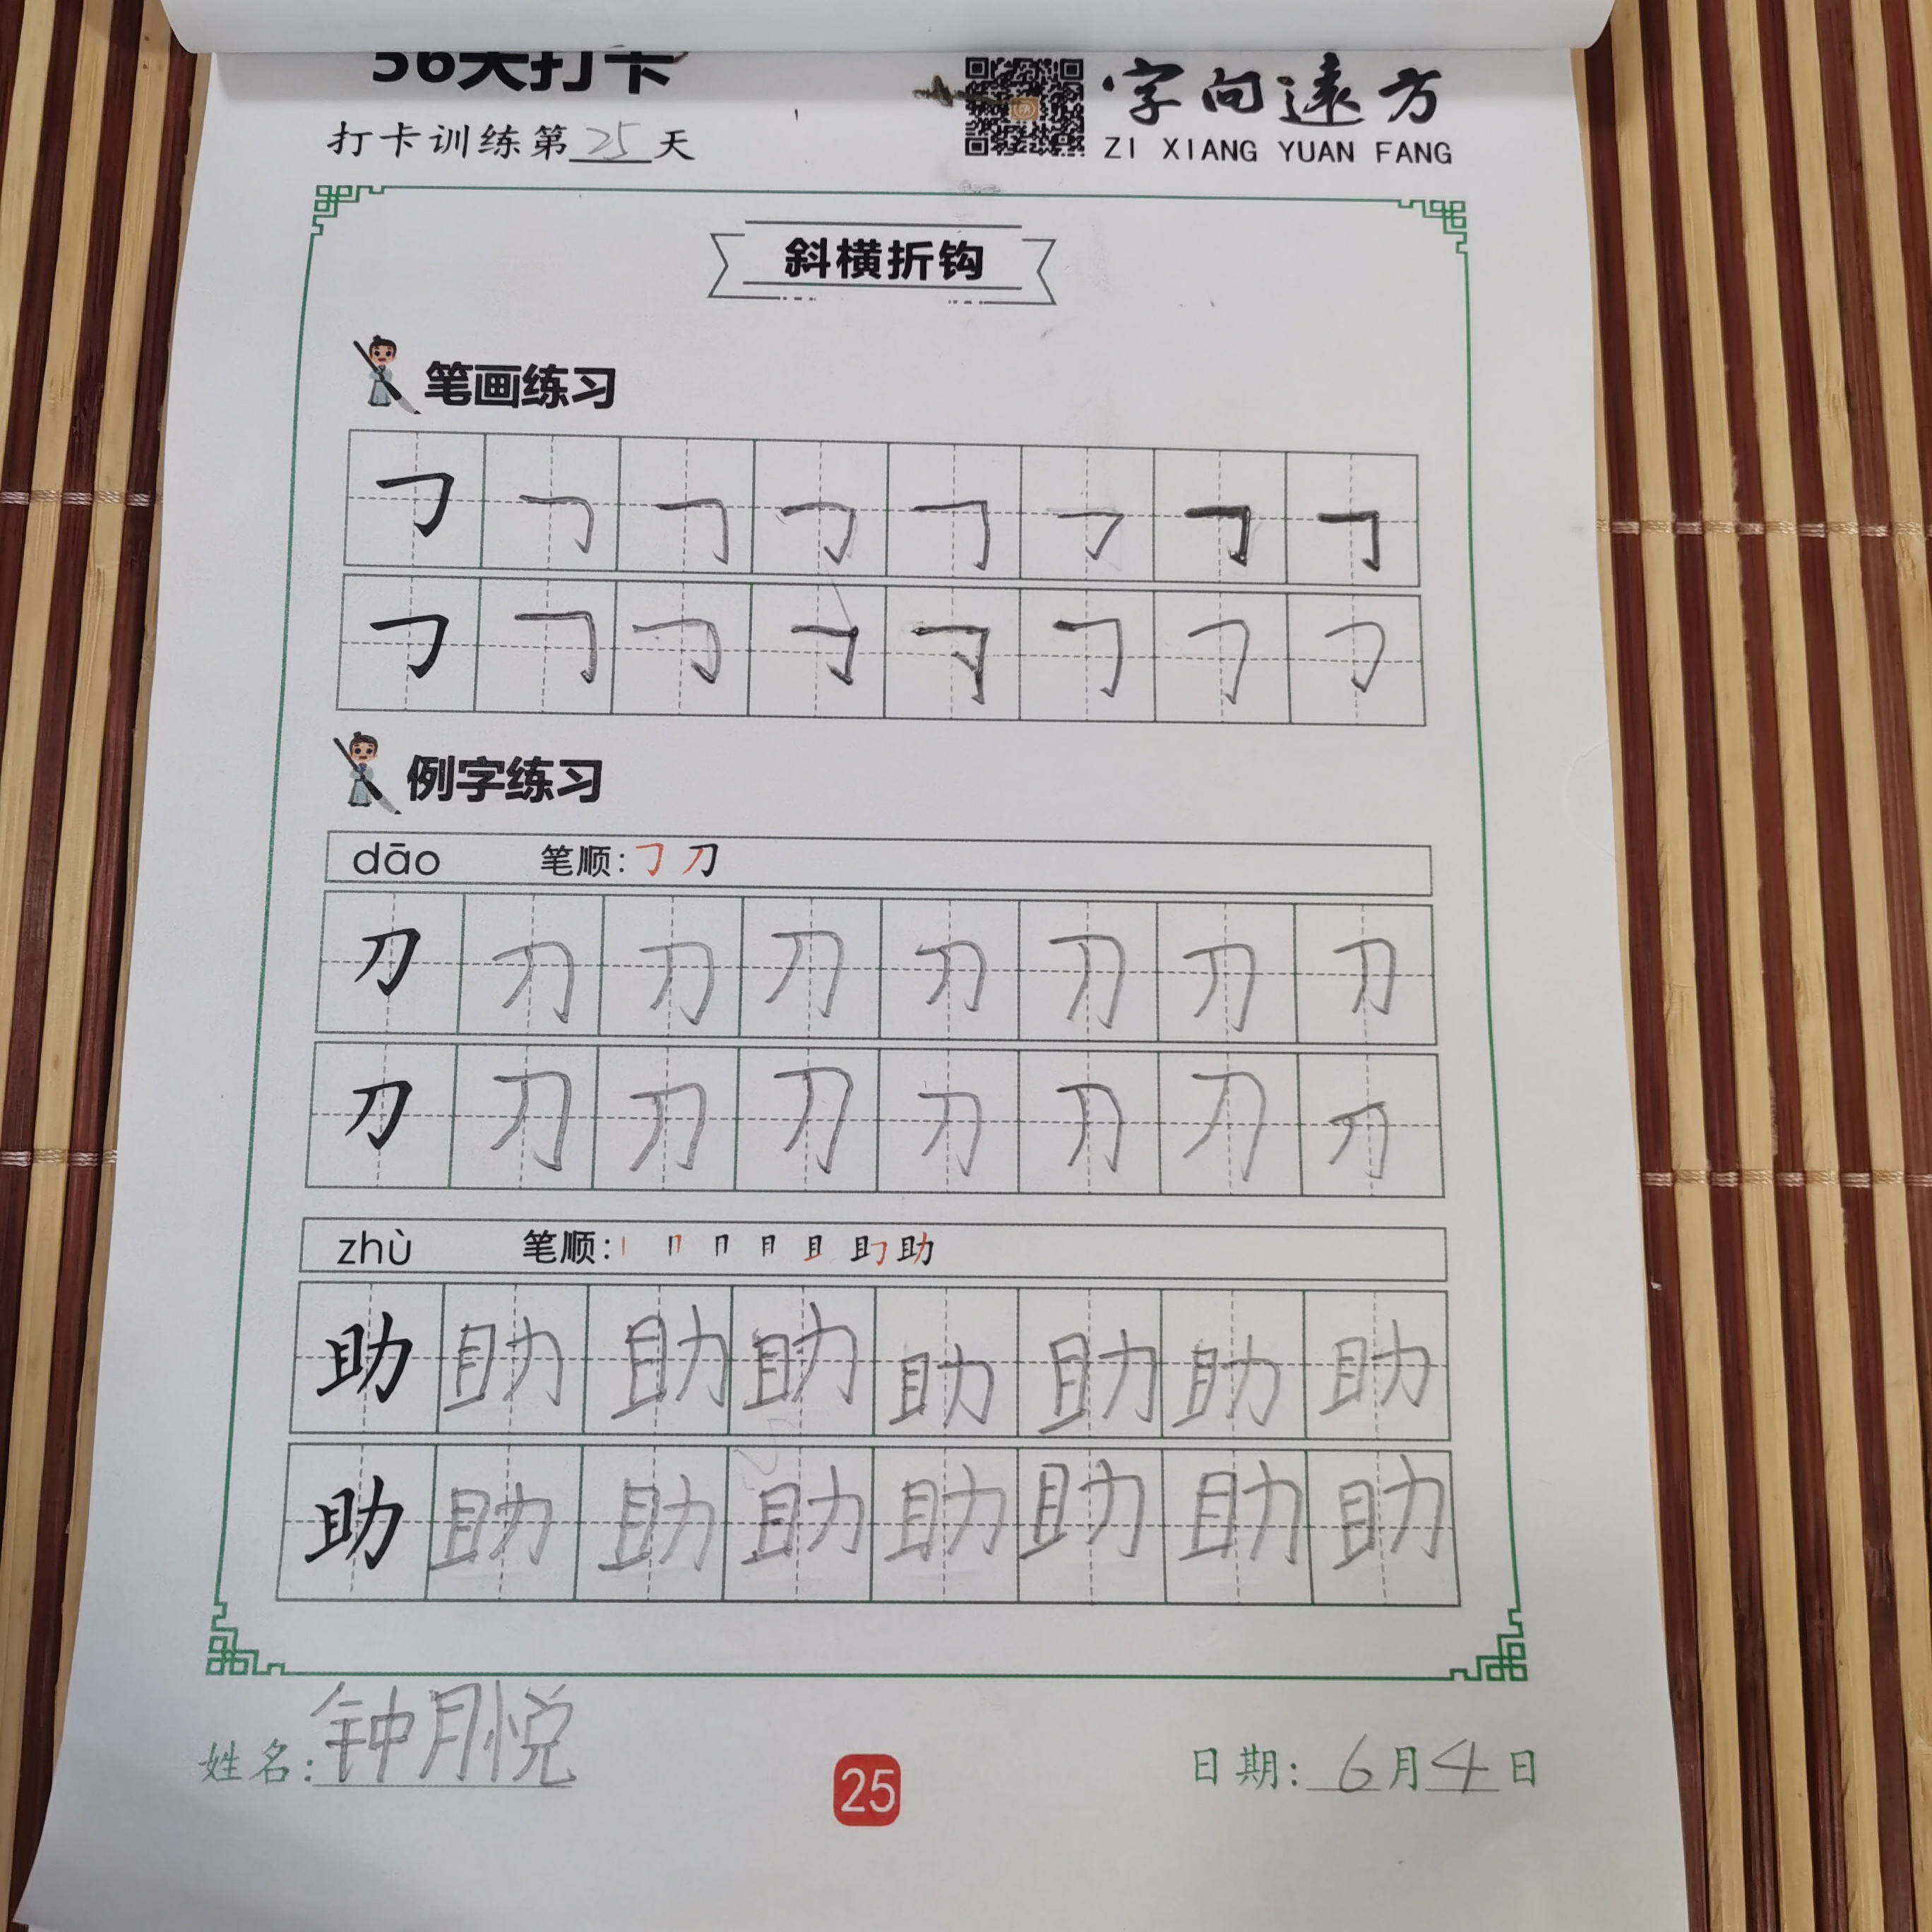 56天打卡
字向遠方
打卡训练第25天
ZI XIANG YUAN FANG
斜横折钩
笔画练习
㇆ ㇆ ㇆ ㇆ ㇆ ㇆ ㇆ ㇆
㇆ ㇆ ㇆ ㇆ ㇆ ㇆ ㇆ ㇆
例字练习
dāo 笔顺:㇆ 刀
刀 刀 刀 刀 刀 刀 刀 刀
刀 刀 刀 刀 刀 刀 刀 刀
zhù 笔顺: 助
助 助 助 助 助 助 助 助
助 助 助 助 助 助 助 助
姓名:钟月悦
25
日期:6月4日